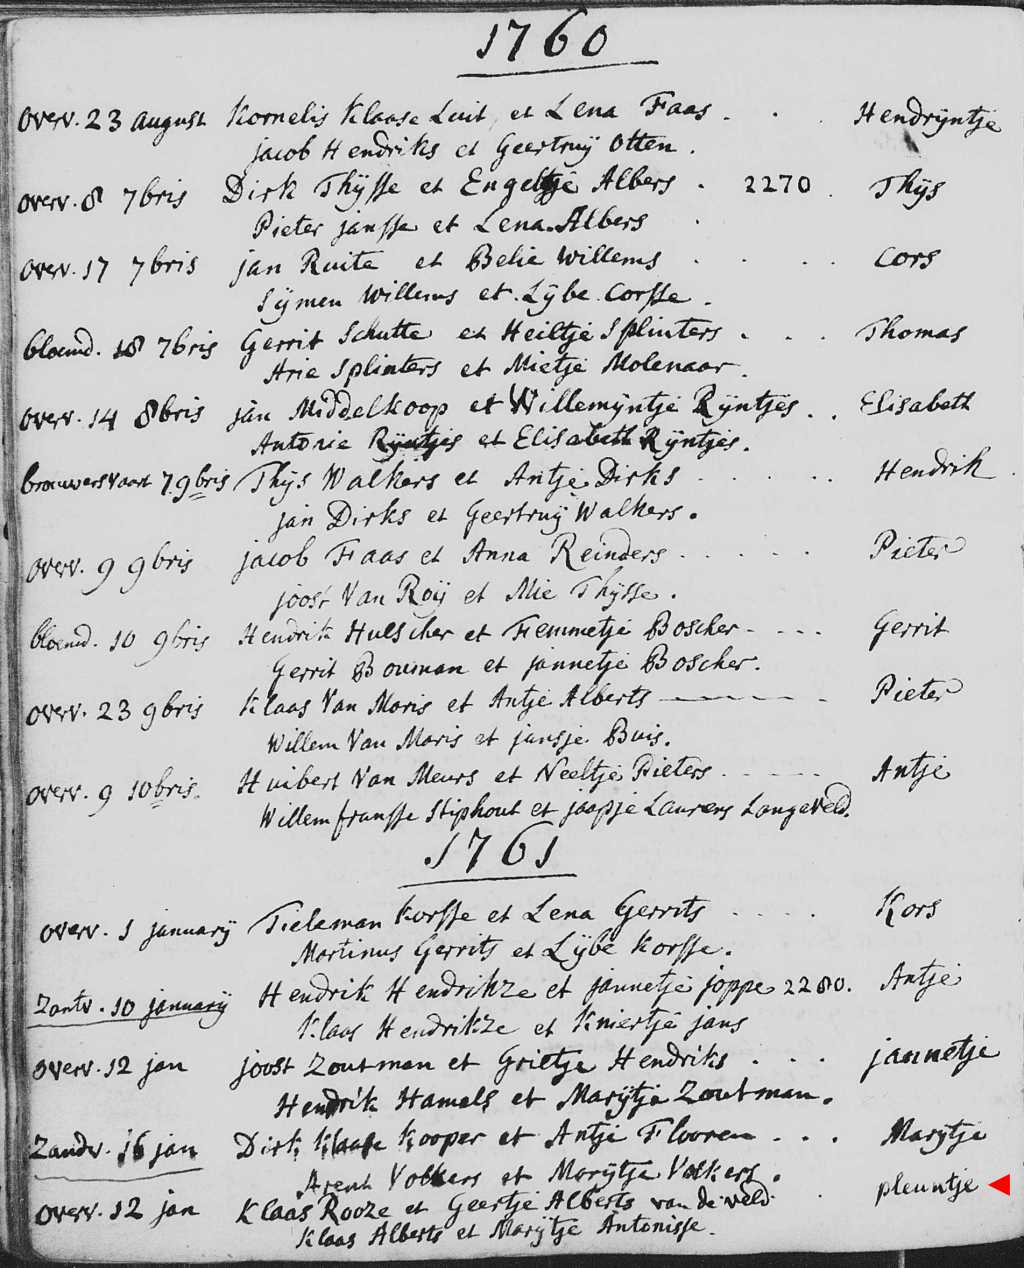 1760
overv. 23 august Kornelis Klaase Luit, et Lena Faas . . . Hendryntje
jacob Hendriks et Geertruij Otten.
overv. 8 7bris Dirk Thÿsse et Engeltje Albers . 2270 . Thÿs
Pieter jansse et Lena Albers
over. 17 7bris jan Ruite et Belie Willems . . . . Cors
Sÿmen Willems et Lÿbe Corsse.
bloemd. 18 7bris Gerrit Schutte et Heiltje Splinters . . . Thomas
Arie Splinters et Mietje Molenaar.
overv. 14 8bris jan Middelkoop et Willemÿntje Rÿntjes . . Elisabeth
Antonie Rÿntjes et Elisabeth Rÿntjes.
brouwersvaart 7 9bris Thÿs Walkers et Antje Dirks . . . . . Hendrik
jan Dirks et Geertruÿ Walkers.
overv. 9 9bris jacob Faas et Anna Reinders . . . . . Pieter
joost Van Roÿ et Mie Thÿsse.
bloemd. 10 9bris Hendrik Hulscher et Femmetje Boscher - . . . Gerrit
Gerrit Bouman et jannetje Boscher.
overv. 23 9bris Klaas Van Moris et Antje Alberts - - - - Pieter
Willem Van Maris et jansje Buis.
overv. 9 10bris. Huibert Van Meurs et Neeltje Pieters . . . . . Antje
Willem fransse Stiphout et jaapje Laurens Langeveld.
1761
overv. 1 januarÿ Tieleman Korsse et Lena Gerrits . . . . Kors
Martinus Gerrits et Lÿbe Korsse.
Zantv. 10 januarÿ Hendrik Hendrikze et jannetje joppe 2280. Antje
Klaas Hendrikze et Kniertje jans
overv. 12 jan joost Zoutman et Grietje Hendriks . . . jannetje
Hendrik Hamels et Marÿtje Zoutman.
Zandv. 16 jan Dirk Klaase Kooper et Antje Flooren . . . Marÿtje
Arent Volkers et Marÿtje Volkers.
overv. 12 jan Klaas Rooze et Geertje Alberts van de veld . pleuntje
Klaas Alberts et Marÿtje Antonisse.